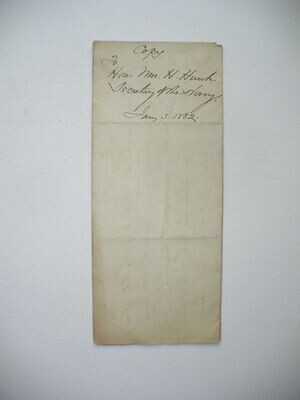 Copy
To
Hon. Wm. H. Hunt.
Secretary of the Navy.
Jany 5. 1882.